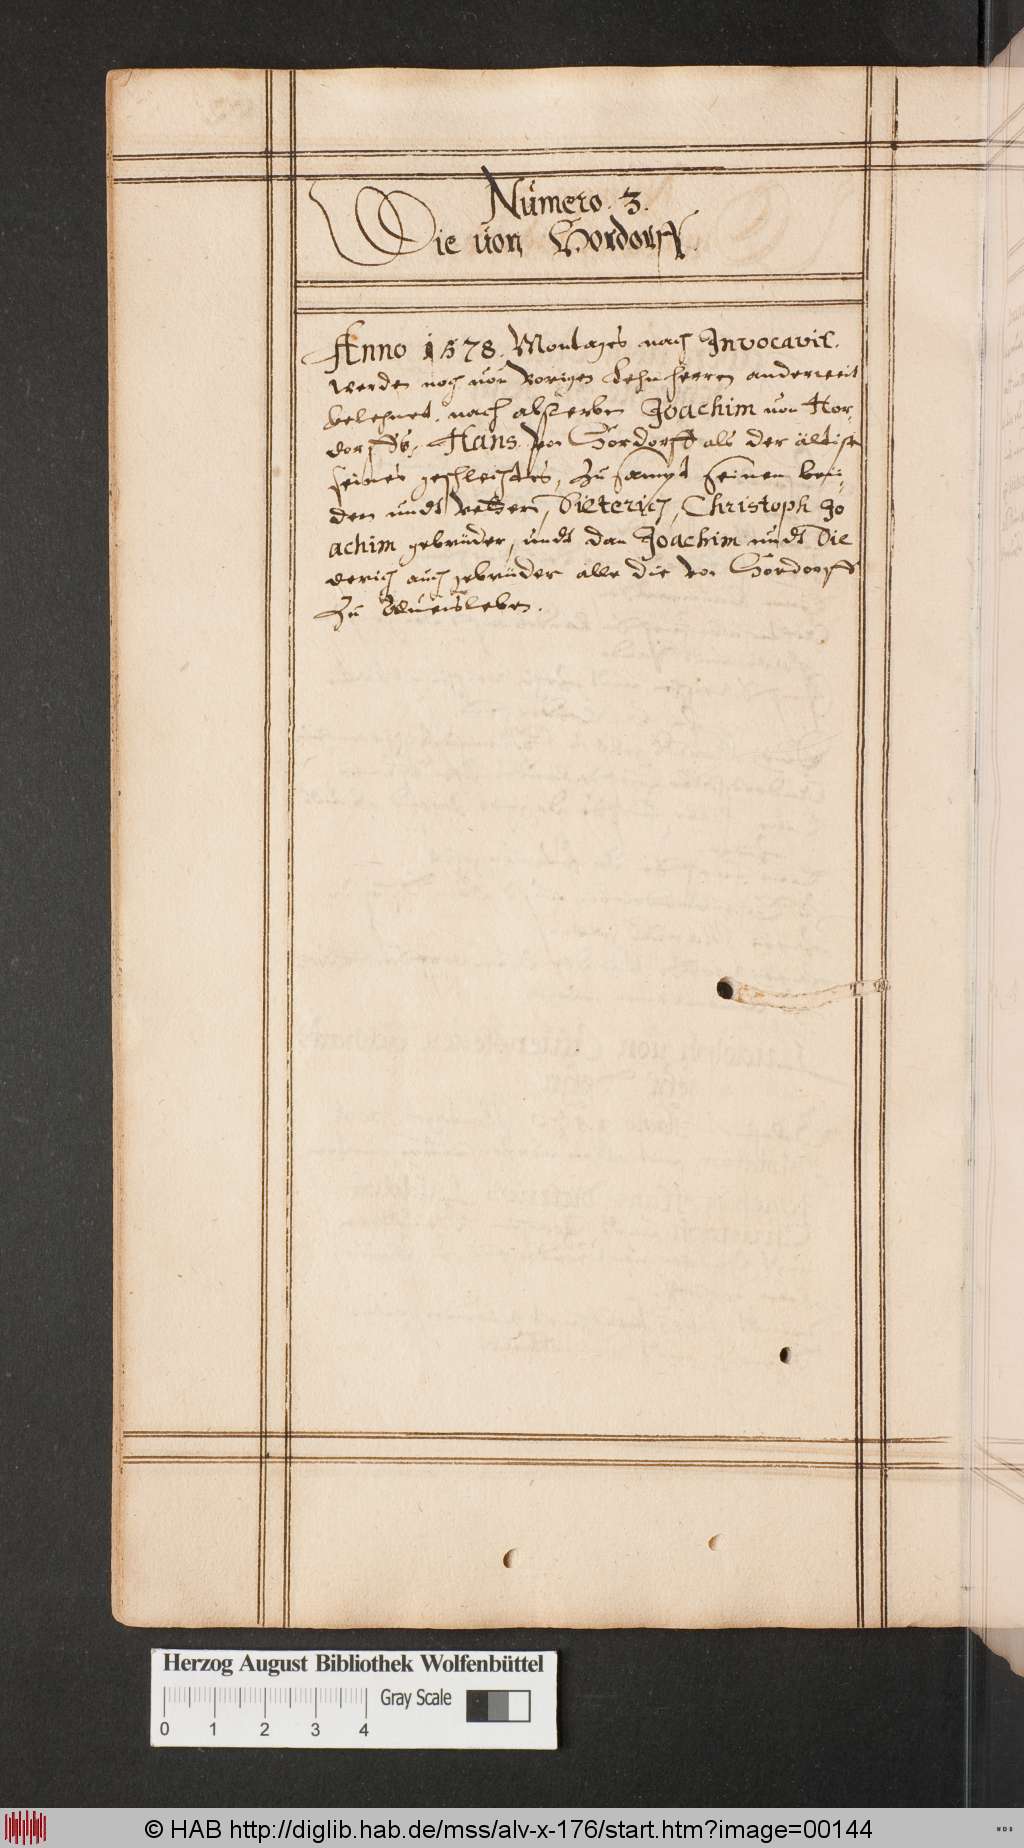 Numero. 3.
Die von Hordorff.
Anno 1578. Montages nach Invocavit.
werden noch von vorigen Lehnherren anderweit
belehnet. nach absterben Joachim von Hor-
dorffs, Hans von Hordorff als der ältiste
seines geschlechtes, zu sampt seinen
den undt vettern, Dieterich, Christoph Jo
achim gebrüder, undt dan Joachim undt Die
derich auch gebrüder alle die von Hordorff
zu
Herzog August Bibliothek Wolfenbüttel
Gray Scale
0 1 2 3 4
© HAB http://diglib.hab.de/mss/alv-x-176/start.htm?image=00144